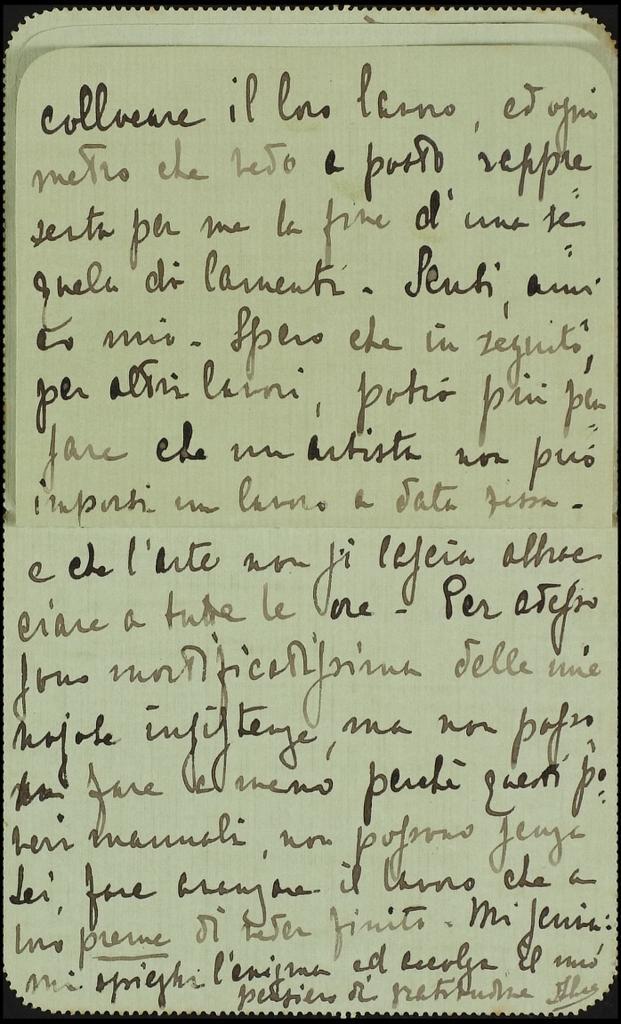 collocare il loro lavoro, ed ogni
metro che vedo a posto rappre
senta per me la fine d'una se=
quela di lamenti. Senti, ami=
co mio. Spero che in seguito,
per altri lavori, potrò più pen
sare che un artista non può
imporsi un lavoro a data fissa.
e che l'arte non si lascia abbrac
ciare a tutte le ore. Per adesso
sono mortificatissima delle mie
nojose insistenze, ma non posso
fare a meno perchè questi po=
veri manuali, non possono senza
Lei, fare avanzare il lavoro che a
loro preme di veder finito. Mi scriva:
mi spieghi l'enigma ed accolga il mio
pensiero di gratitudine